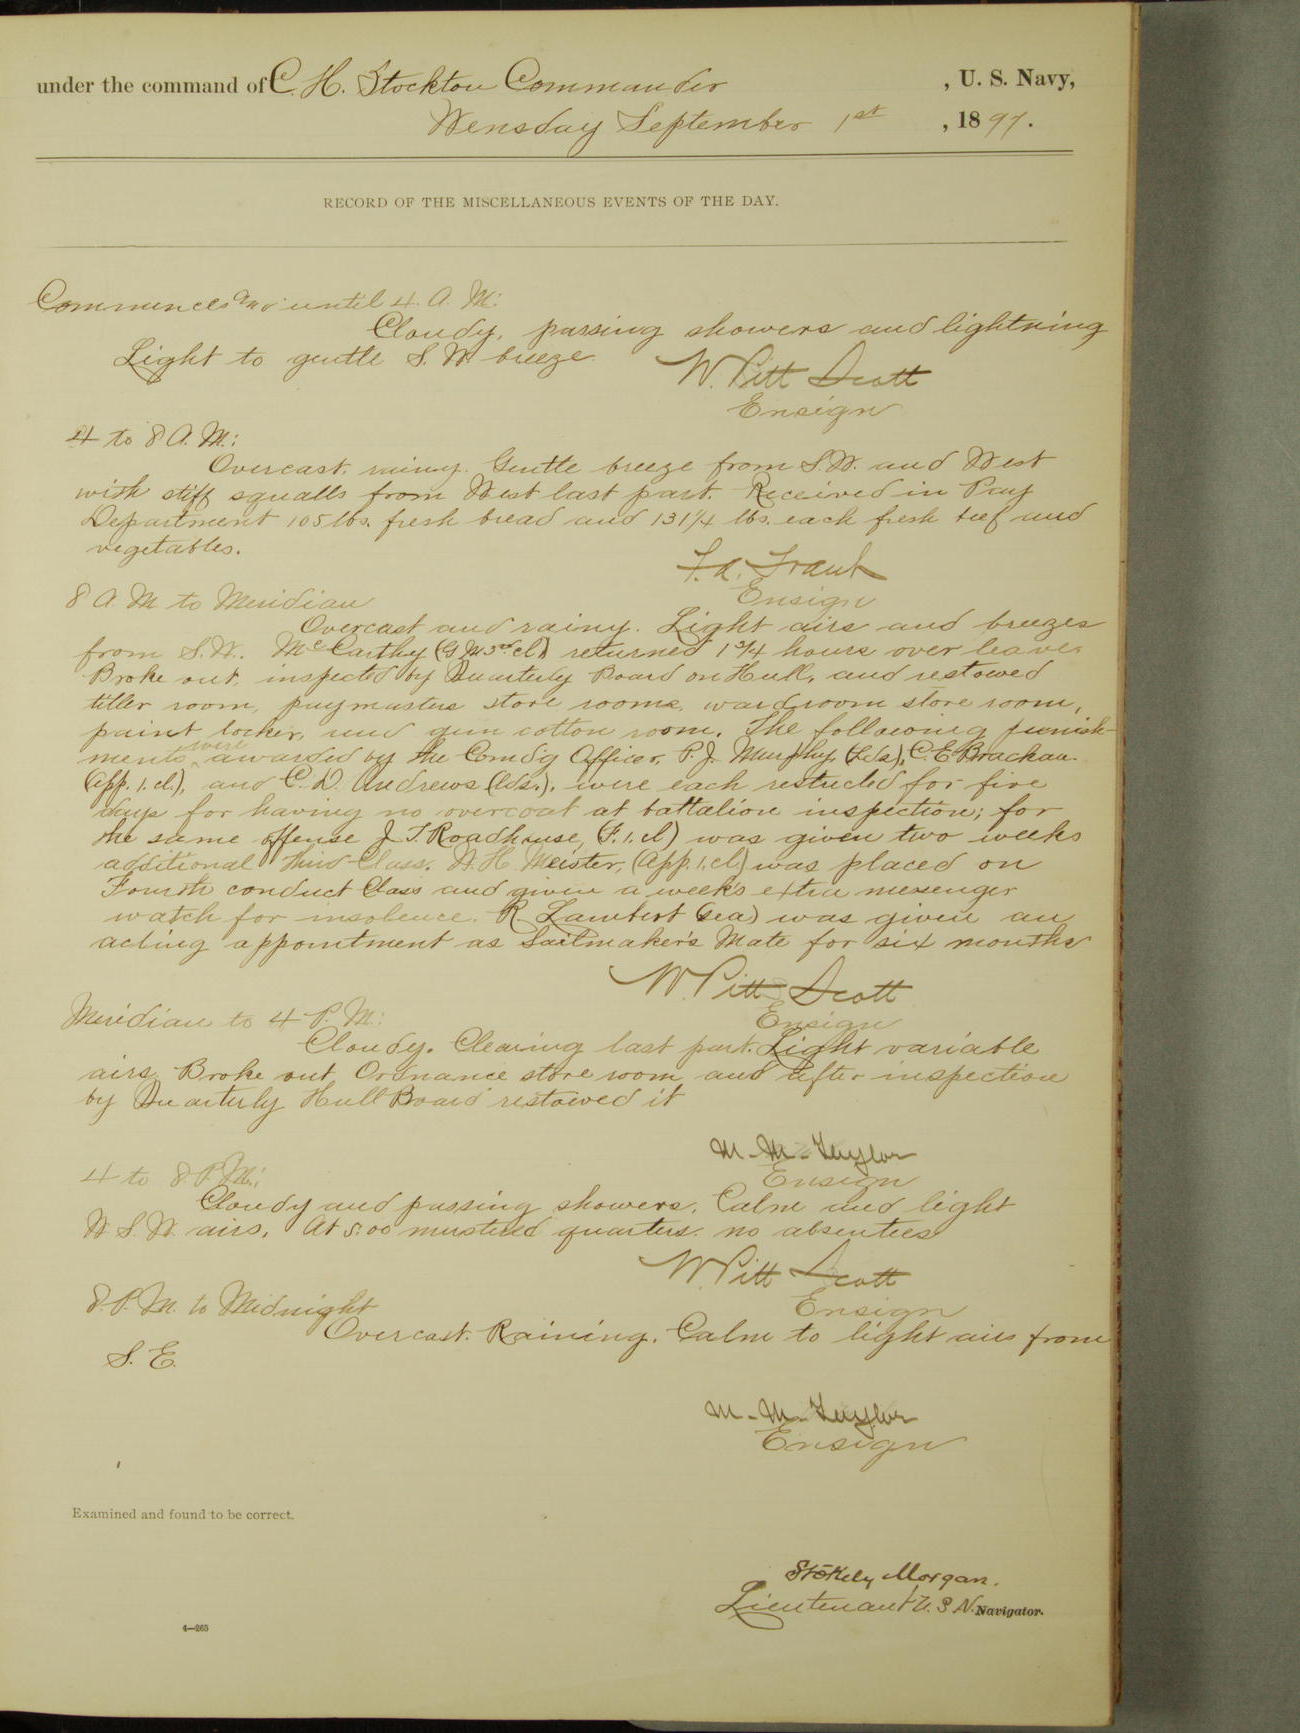 under the command of C. H. Stockton Commander , U. S. Navy,
Wensday September 1st , 1897.
RECORD OF THE MISCELLANEOUS EVENTS OF THE DAY.
Commences and until 4. A. M:
Cloudy, passing showers and lightning
Light to gentle S. W. breeze.
W. Pitt Scott
Ensign
4 to 8 A. M.:
Overcast, rainy. Gentle breeze from S.W. and West
with stiff squalls from West last part. Received in Pay
Department 105 lbs. fresh bread and 131 1/4 lbs. each fresh beef and
vegetables.
Ensign
8 A. M to Meridian
Overcast and rainy. Light airs and breezes
from S.W. McCarthy (G M 3rd cl) returned 1 3/4 hours over leave.
Broke out, inspected by Quarterly Board on Hull, and restowed
tiller room, paymasters store rooms, wardroom store room,
paint locker, and gun cotton room. The following punish-
ments were awarded by the Comdg Officer, P. J. Murphy, (Lds), C. E. Brackan
(app. 1. cl.), and C. D. Andrews (Lds.), were each restricted for five
days for having no overcoat at battalion inspection; for
the same offense J. T. Roadhouse, (F. 1. cl) was given two weeks
additional third Class. W. H. Meister, (App. 1. cl) was placed on
Fourth conduct Class and given a week's extra messenger
watch for insolence. R. Lambert (Sea) was given an
acting appointment as Sailmaker's Mate for six months
W. Pitt Scott
Ensign
Meridian to 4 P. M.:
Cloudy. Clearing last part. Light variable
airs. Broke out Ordnance store room and after inspection
by Quarterly Hull Board restowed it
M. M. Taylor
Ensign
4 to 8 P. M.:
Cloudy and passing showers. Calm and light
W S. W. airs. At 5.00 mustered quarters. no absentees
W. Pitt Scott
Ensign
8. P. M. to Midnight
Overcast. Raining. Calm to light airs from
S. E.
M. M. Taylor
Ensign
Examined and found to be correct.
Stokely Morgan.
Lieutenant U. S N. Navigator.
4—265